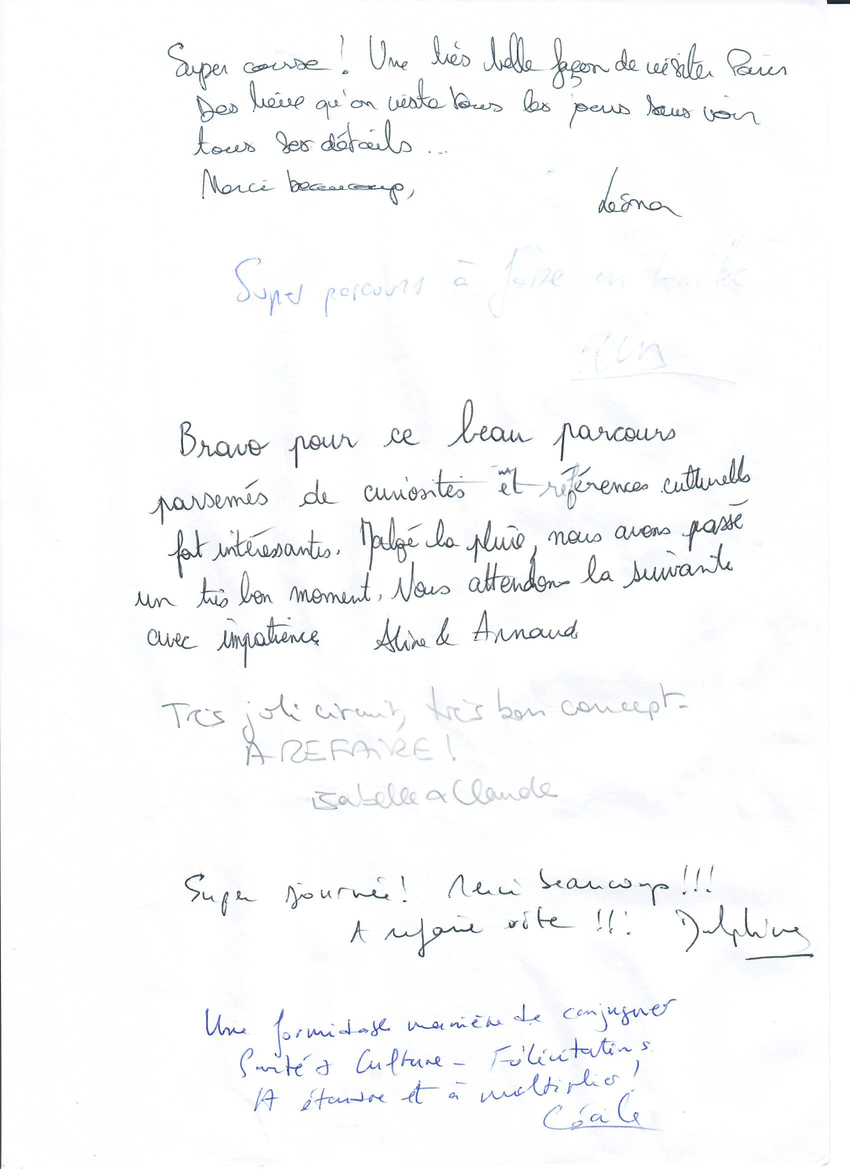 Super course ! Une très belle façon de visiter Paris
Des lieux qu'on visite tous les jours sans voir
tous ses détails ...
Merci beaucoup,
Leïna
Super parcours à faire en
Bravo pour ce beau parcours
parsemés de curiosités et références culturelles
fort intéressantes. Malgré la pluie, nous avons passé
un très bon moment. Nous attendons la suivante
avec impatience Aline & Arnaud
Très joli circuit, très bon concept -
A REFAIRE !
isabelle & Claude
Super journée ! Merci beaucoup !!!
A refaire vite !!! Delphine
Une formidable manière de conjuguer
Santé & Culture - Félicitations
A étendre et à multiplier !
Cécile